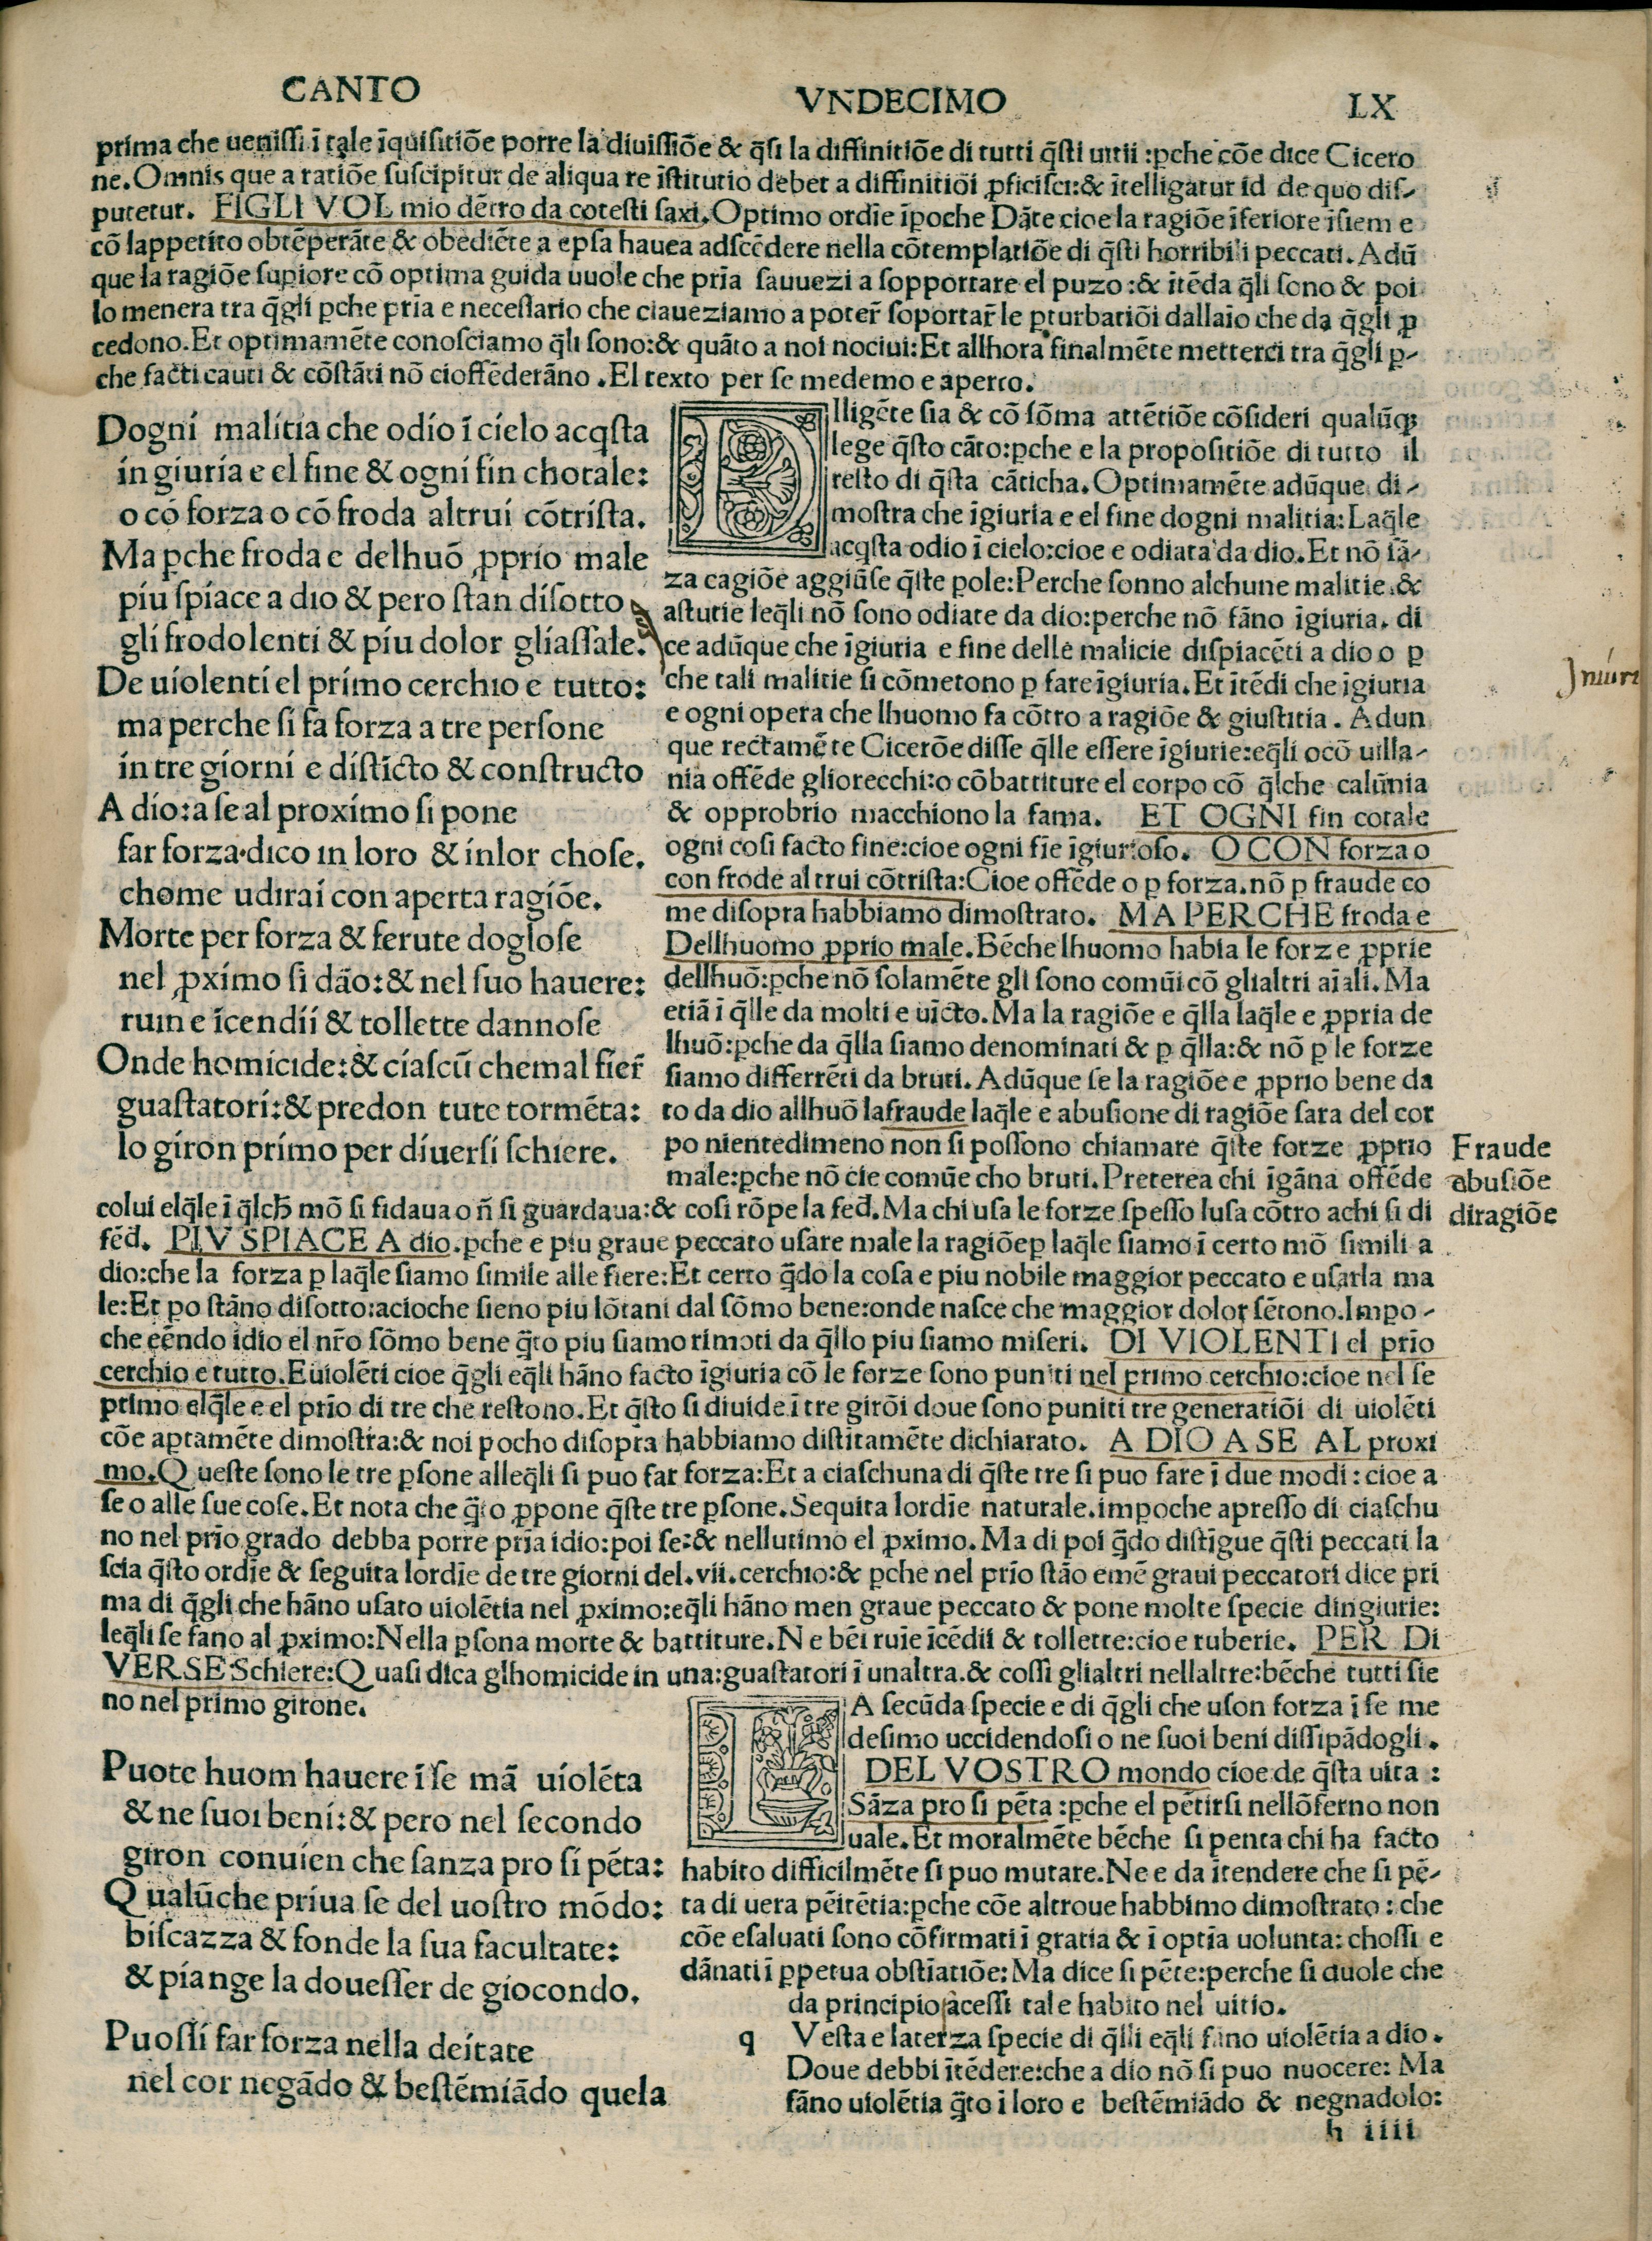 CANTO VNDECIMO LX
prima che uenissi ī tale īquisitiōe porre la diuissiōe & q̄si la diffinitiōe di tutti q̄sti uitii :ꝑche cōe dice Cicero
ne. Omnis que a ratiōe suscipitur de aliqua re īstitutio debet a diffinitiōi ꝓficisci:& ītelligatur id de quo dis-
putetur. FIGLI VOL mio dētro da cotesti saxi. Optimo ordīe īpoche Dāte cioe la ragiōe īferiore īsiem e
cō lappetito obtēperāte & obediēte a epsa hauea adscēdere nella cōtemplatiōe di q̄sti horribili peccati. Adū
que la ragiōe supiore cō optima guida uuole che pria sauuezi a sopportare el puzo :& itēda q̄li sono & poi
lo menera tra q̄gli ꝑche pria e necessario che ciaueziamo a poter̄ soportar̄ le ꝑturbatiōi dallaīo che da q̄gli ꝓ
cedono. Et optimamēte conosciamo q̄li sono:& quāto a noi nociui: Et allhora finalmēte metterci tra q̄gli ꝑ-
che facti cauti & cōstāti nō cioffēderāno . El texto per se medemo e aperto.
Dogni malitia che odio ī cielo acq̄sta
in giuria e el fine & ogni fin chotale:
o cō forza o cō froda altrui cōtrista.
Ma ꝑche froda e delhuō ꝓprio male
piu spiace a dio & pero stan disotto
gli frodolenti & piu dolor gliassale.
De uiolenti el primo cerchio e tutto:
ma perche si fa forza a tre persone
in tre giorni e distīcto & constructo
A dio:a se al proximo si pone
far forza.dico in loro & inlor chose.
chome udirai con aperta ragiōe.
Morte per forza & ferute doglose
nel ꝓximo si dāo:& nel suo hauere:
ruin e īcendii & tollette dannose
Onde homicide:& ciascū chemal fier̄
guastatori:& predon tute tormēta:
lo giron primo per diuersi schiere.
Dlligēte sia & cō sōma attētiōe cōsideri qualūqꝫ
lege q̄sto cāto:ꝑche e la propositiōe di tutto il
resto di q̄sta cāticha. Optimamēte adūque di-
mostra che īgiuria e el fine dogni malitia: Laq̄le
acq̄sta odio ī cielo:cioe e odiata da dio. Et nō sā-
za cagiōe aggiūse q̄ste ꝑole: Perche sonno alchune malitie.&
astutie leq̄li nō sono odiate da dio:perche nō fāno īgiuria. di
ce adūque che īgiuria e fine delle malicie dispiacēti a dio o ꝑ
che tali malitie si cōmetono ꝑ fare īgiuria. Et ītēdi che īgiuria
e ogni opera che lhuomo fa cōtro a ragiōe & giustitia . Adun
que rectamēte Cicerōe disse q̄lle essere īgiurie:eq̄li ocō uilla-
nia offēde gliorecchi:o cō battiture el corpo cō q̄lche calūnia
& opprobrio macchiono la fama. ET OGNI fin cotale
ogni cosi facto fine:cioe ogni fīe īgiurioso. O CON forza o
con frode altrui cōtrista: Cioe offēde o ꝑ forza.nō ꝑ fraude co
me disopra habbiamo dimostrato. MA PERCHE froda e
Dellhuomo ꝓprio male. Bēche lhuomo habia le forze ꝓprie
dellhuō:ꝑche nō solamēte gli sono comūi cō glialtri aīali. Ma
etiā ī q̄lle da molti e uīcto. Ma la ragiōe e q̄lla laq̄le e ꝓpria de
lhuō:ꝑche da q̄lla siamo denominati & ꝑ q̄lla:& nō ꝑ le forze
siamo differrēti da bruti. Adūque se la ragiōe e ꝓprio bene da
to da dio allhuō lafraude laq̄le e abusione di ragiōe sara del cor
po nientedimeno non si possono chiamare q̄ste forze ꝓprio
male:ꝑche nō cie comūe cho bruti. Preterea chi īgāna offēde
Fraude
abusiōe
diragiōe
Iniuri
colui elq̄le ī q̄lcħ mō si fidaua o n̄ si guardaua:& cosi rōpe la fed. Ma chi usa le forze spesso lusa cōtro achi si di
fēd. PIV SPIACE A dio.ꝑche e piu graue peccato usare male la ragiōeꝑ laq̄le siamo ī certo mō simili a
dio:che la forza ꝑ laq̄le siamo simile alle fiere: Et certo q̄do la cosa e piu nobile maggior peccato e usarla ma
le: Et ꝑo stāno disotto:acioche sieno piu lōtani dal sōmo bene:onde nasce che maggior dolor sētono. Impo-
che eēndo idio el nr̄o sōmo bene q̄to piu siamo rimoti da q̄llo piu siamo miseri. DI VIOLENTI el prīo
cerchio e tutto. E uiolēti cioe q̄gli eq̄li hāno facto īgiuria cō le forze sono puniti nel primo cerchio:cioe nel se
ptimo elq̄le e el prīo di tre che restono. Et q̄sto si diuide ī tre girōi doue sono puniti tre generatiōi di uiolēti
cōe aptamēte dimostra:& noi pocho disopra habbiamo distītamēte dichiarato. A DIO A SE AL proxi
mo. Queste sono le tre ꝑsone alleq̄li si puo far forza: Et a ciaschuna di q̄ste tre si puo fare ī due modi : cioe a
se o alle sue cose. Et nota che q̄to ꝓpone q̄ste tre ꝑsone. Sequita lordīe naturale.impoche apresso di ciaschu
no nel prīo grado debba porre prīa idio:poi se:& nellutimo el ꝓximo. Ma di poi q̄do distīgue q̄sti peccati la
scia q̄sto ordīe & seguita lordīe de tre giorni del.vii.cerchio:& ꝑche nel prīo stāo emē graui peccatori dice pri
ma di q̄gli che hāno usato uiolētia nel ꝓximo:eq̄li hāno men graue peccato & pone molte specie dingiurie:
leq̄li se fano al ꝓximo: Nella ꝑsona morte & battiture. Ne bēi ruīe īcēdii & tollette:cioe ruberie. PER DI
VERSE Schiere: Quasi dica glhomicide in una:guastatori ī unaltra.& cossi glialtri nellaltre:bēche tutti sie
no nel primo girone.
Puote huom hauere ī se mā uiolēta
& ne suoi beni:& pero nel secondo
giron conuien che sanza pro si pēta:
Qualūche priua se del uostro mōdo:
biscazza & fonde la sua facultate:
& piange la douesser de giocondo.
Puossi far forza nella deitate
nel cor negādo & bestēmiādo quela
LA secūda specie e di q̄gli che uson forza ī se me
desimo uccidendosi o ne suoi beni dissipādogli.
DEL VOSTRO mondo cioe.de q̄sta uita :
Sāza pro si pēta :ꝑche el pētirsi nellōferno non
uale. Et moralmēte bēche si penta chi ha facto
habito difficilmēte si puo mutare. Ne e da ītendere che si pē-
ta di uera pēitētia:ꝑche cōe altroue habbimo dimostrato : che
cōe esaluati sono cōfirmati ī gratia & ī optīa uolunta: chossi e
dānati ī ꝑpetua obstīatiōe: Ma dice si pēte:perche si duole che
da principio facessi tale habito nel uitio.
q Vesta e laterza specie di q̄lli eq̄li fāno uiolētia a dio.
Doue debbi ītēdere:che a dio nō si puo nuocere: Ma
fāno uiolētia q̄to ī loro e bestēmiādo & negnadolo:
h iiii